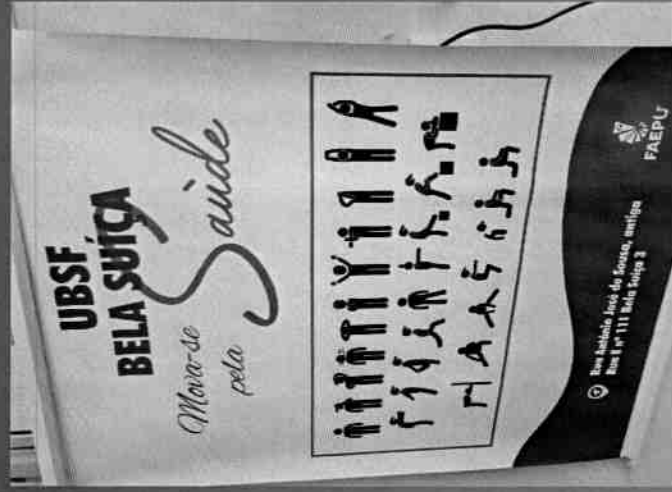 UBSF
BELA SUÍÇA
Mova-se
pela
Saúde
Rua Antônio José de Sousa, antiga
Rua E nº 111 Bela Suíça 3
FAEPU